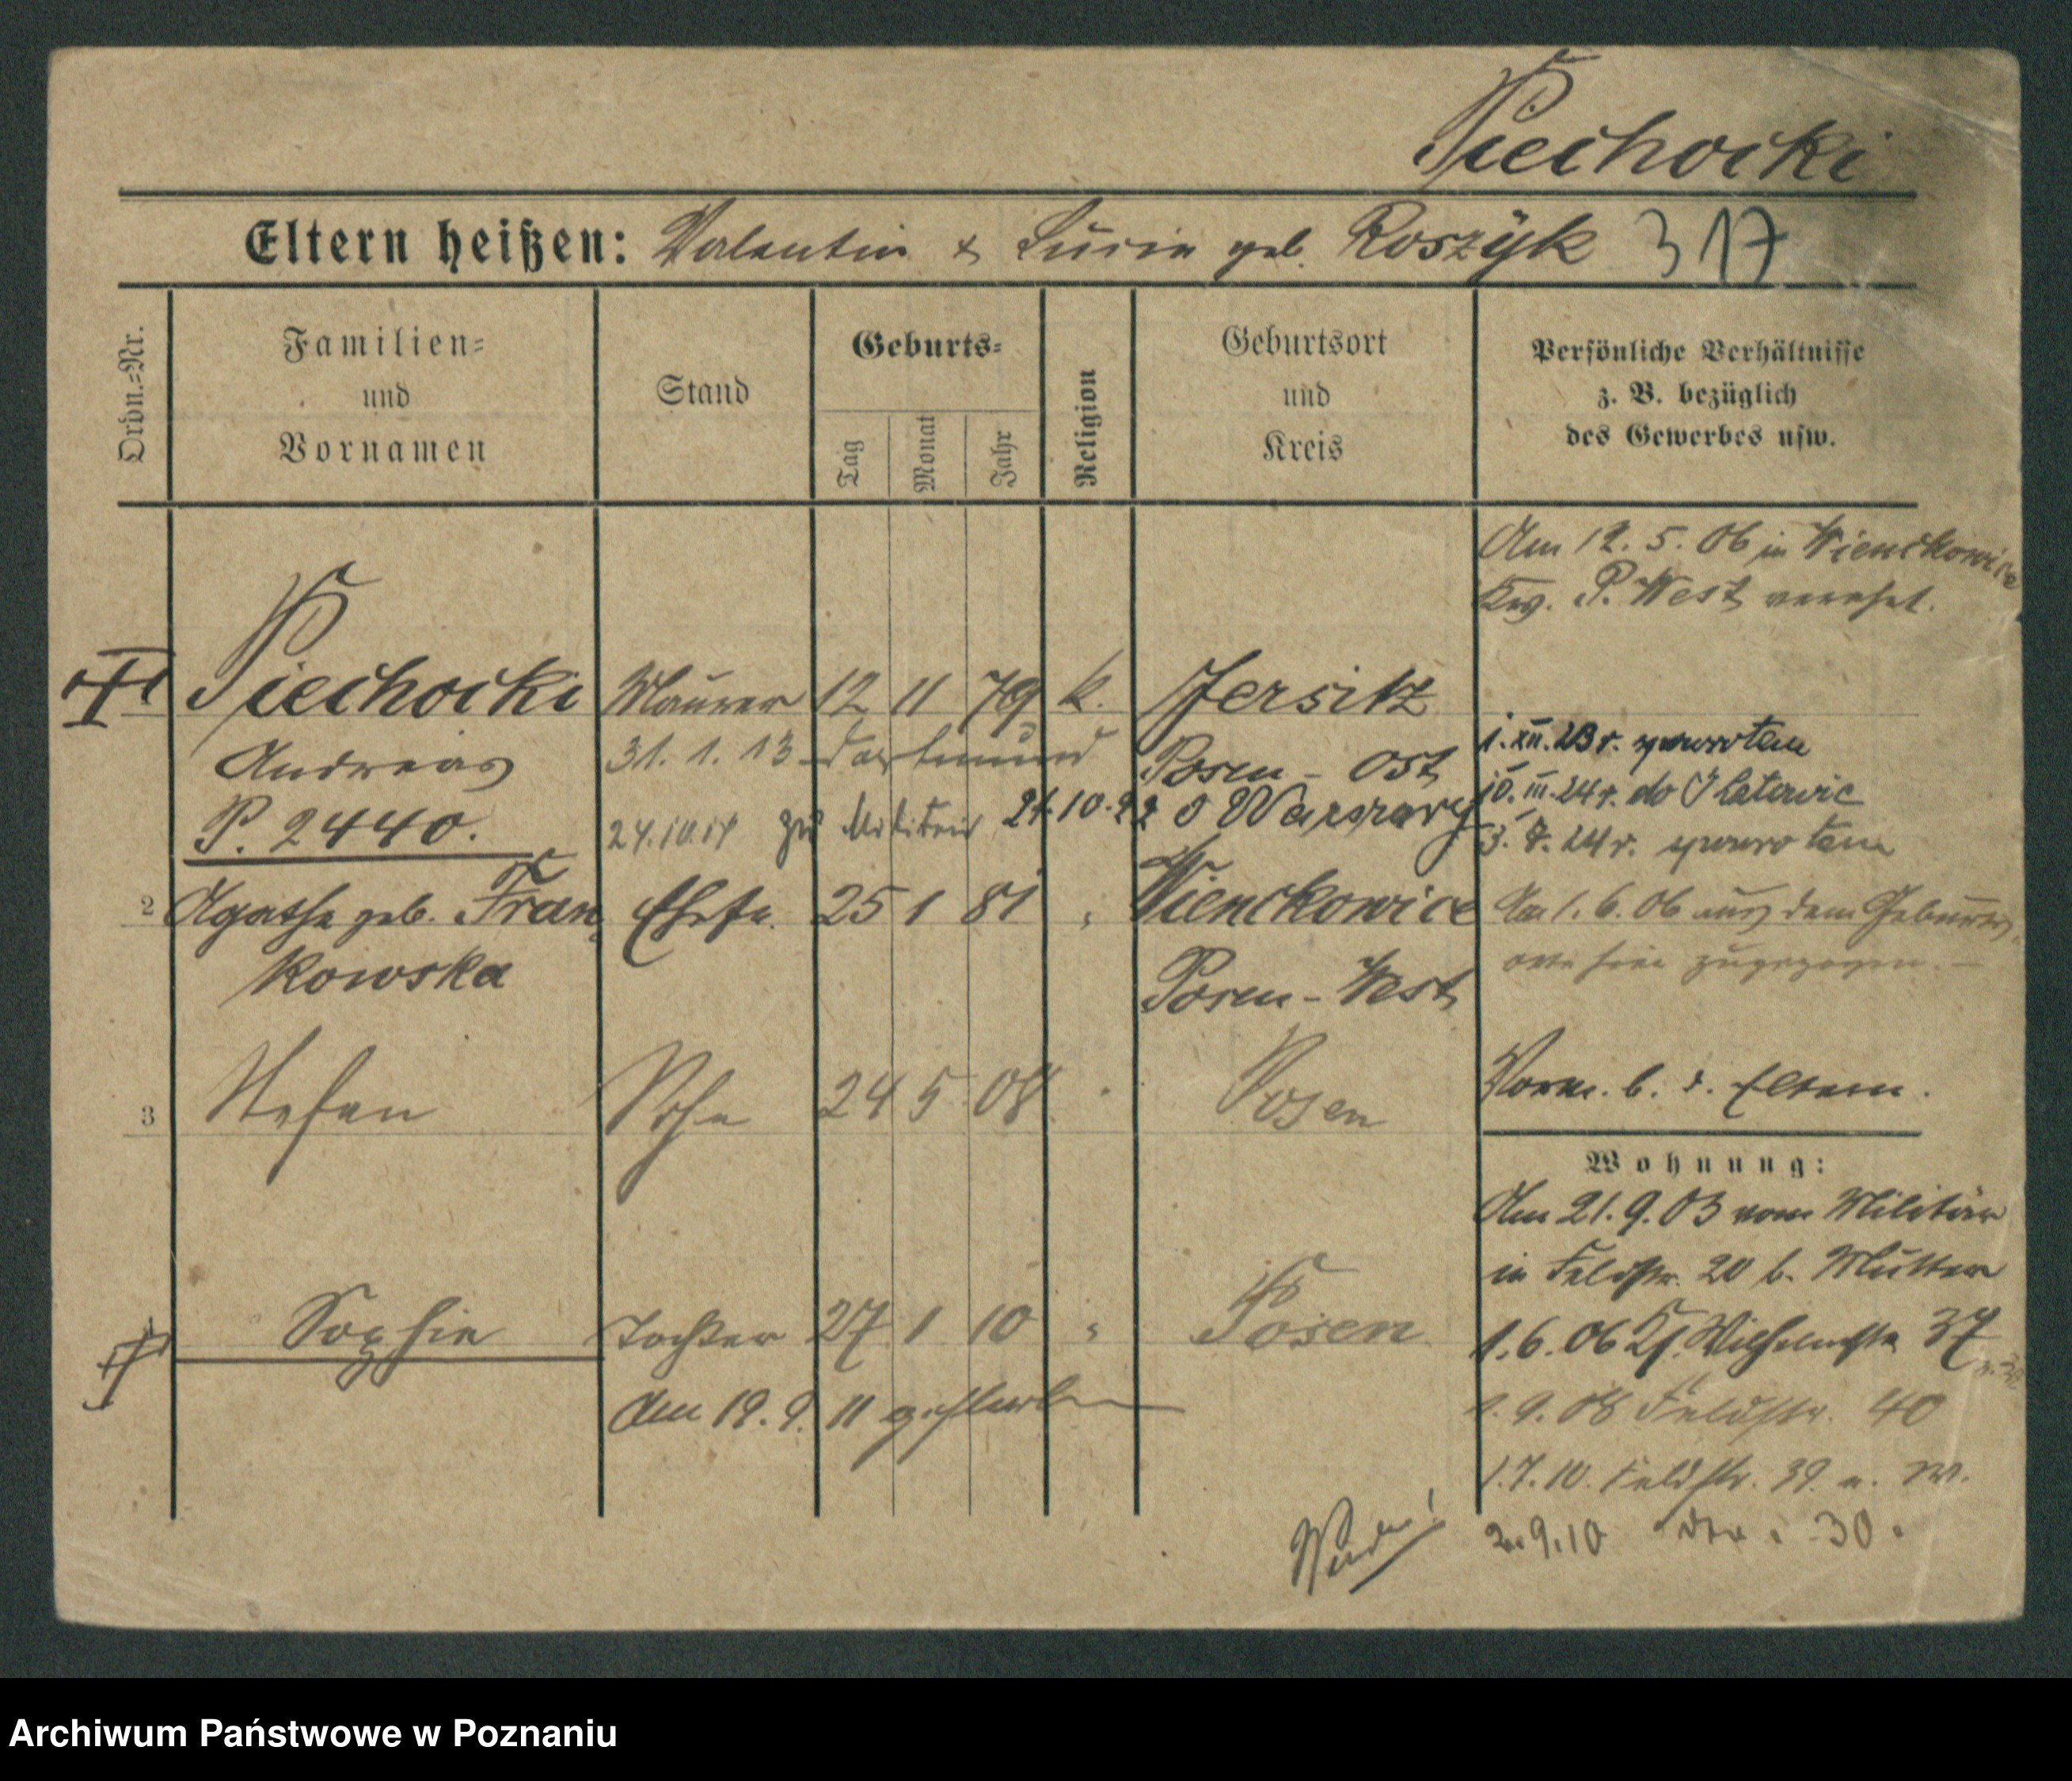 Piechocki
Eltern heißen: Valentin & Lucie geb. Roszyk 317
Ordn.-Nr.
Familien- und Vornamen
Stand
Geburts-
Tag
Monat
Jahr
Religion
Geburtsort und Kreis
Persönliche Verhältnisse
z. B. bezüglich
des Gewerbes usw.
Am 12. 5. 06 in Wienckowice
P. West verehel.
Piechocki Maurer 12 11 79 k. Jersitz
Andreas 31. 1. 13 Dortmund Posen - Ost
1. XII. 23 r. spowrotem
P. 2440. 24.10.14 zum Militair 21.10.22 Warszawy
10. III. 24 r. do
3. 7. 24 r. spowrotem
2 Agathe geb. Fran Ehefr. 25 1 81 " Wienckowice Am 1. 6. 06 aus dem Geburts-
kowska Posen - West
orte hier zugezogen. -
3 Stefan Sohn 24 5 08 " Posen
Vorm. b. d. Eltern.
Wohnung:
Am 21. 9. 03 vom Militär
in Feldstr. 20 b. Mutter
Sophie Tochter 27 1 10 " Posen
1. 6. 06 Wilhelmstr. 37
Am 19. 9. 11 gestorben
9. 08 Feldstr. 40
1. 7. 10. Feldstr. 39.
2. 9. 10 30.
Wenden!
Archiwum Państwowe w Poznaniu